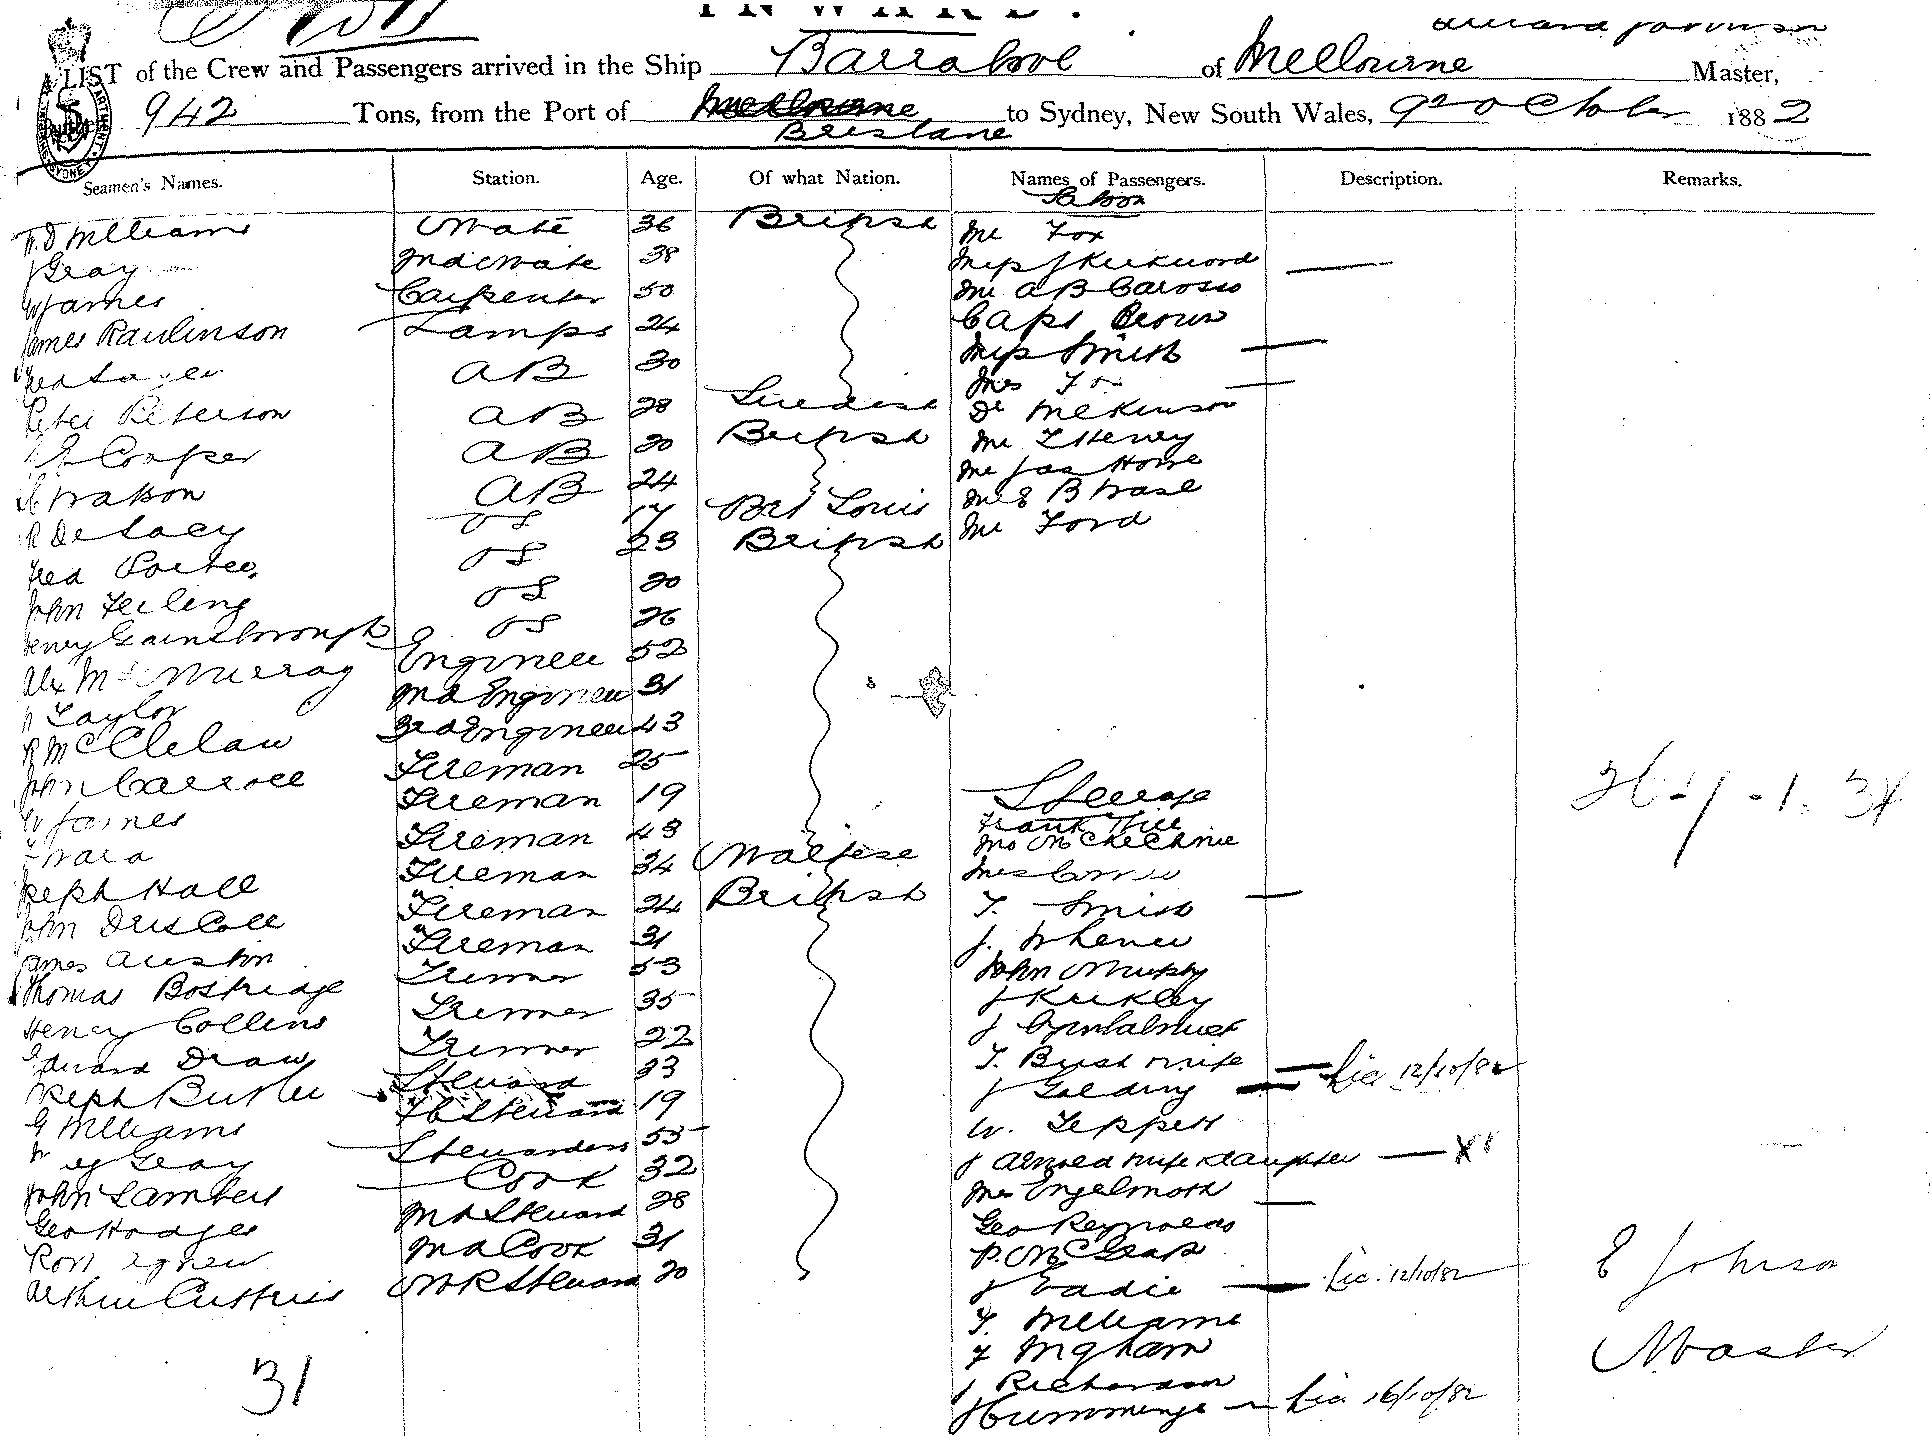 INWARD.
LIST of the Crew and Passengers arrived in the Ship Barrabool of Melbourne Master,
942 Tons, from the Port of Melbourne to Sydney, New South Wales, 9th October 1882
Brisbane
Seamen's Names. Station. Age. Of what Nation. Names of Passengers. Description. Remarks.
Saloon
Williams Mate 36 British Mr Fox
Gray 2nd Mate 38 Miss J Kirkwood
W James Carpenter 50 Mr A B
James Rawlinson Lamps 24 Capt Brown
AB 30 Miss Smith
Peter Peterson AB 28 Swedish Mrs Fox
Cooper AB 20 British Dr McKinnon
Watson AB 24 Mr T Henry
R De Lacy OS 17 Port Louis Mr Jas Howe
Fred Porter OS 23 British
John OS 20 Mr Ford
Henry Gainsborough OS 26
Alex McMurray Engineer 52
Taylor 2nd Engineer 31
R McClelan 3rd Engineer 43
John Carroll Fireman 25
W James Fireman 19 Steerage
Ward Fireman 43 Frank Hill
Joseph Hall Fireman 34 Maltese Mrs McKechnie
John Driscoll Fireman 24 British T. Smith
James Austin Fireman 31 J.
Thomas Bostridge Trimmer 53 John Murphy
Henry Collins Trimmer 35 J Kirkley
Edward Draw Trimmer 22 J
Joseph Butler Steward 23 T. Bush wife
G Williams F C Steward 19 J Golding Lic 12/10/82
Gray Stewardess 55 W. Teppett
John Lambert Cook 32 J Arnold wife & daughter X
Geo Hodges 2nd Steward 28 Mrs Engelmoth
Ross Agnew 2nd Cook 31 Geo Reynolds
Arthur M R Steward 20 P. McGrath
J Eadie Lic. 12/10/82
T. Williams
F Ingham
J Richardson
J Cummings Lic 16/10/82
31
E Johnson
Master